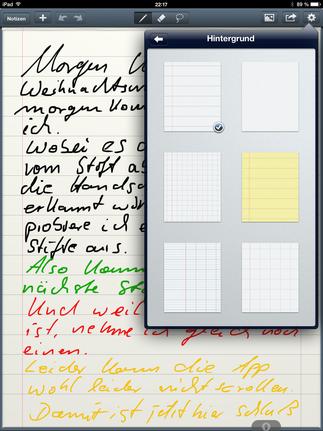 iPad
22:17
89 %
Notizen
Hintergrund
Morgen
Weihnachts
morgen
ich.
Wobei es
vom Stoff
die
erkannt
probiere ich
Stifte aus.
Also
nächste
Und weil
ist, nehme ich gleich noch
einen.
Leider kann die App
wohl leider nicht scrollen.
Damit ist jetzt hier schluß